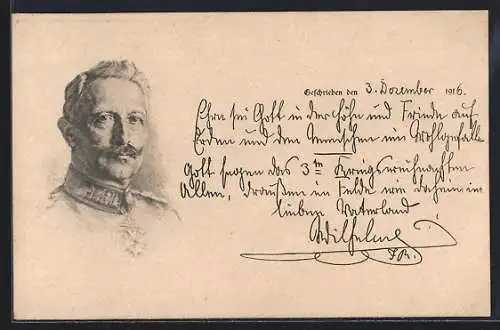 Geschrieben den 3. Dezember 1916.
Ehre sei Gott in der Höhe und Friede auf
Erden und den Menschen ein Wohlgefallen
Gott segne das 3te Kriegsweihnachten
Allen, draußen im Felde wie daheim im
lieben Vaterland
Wilhelm
I.R.